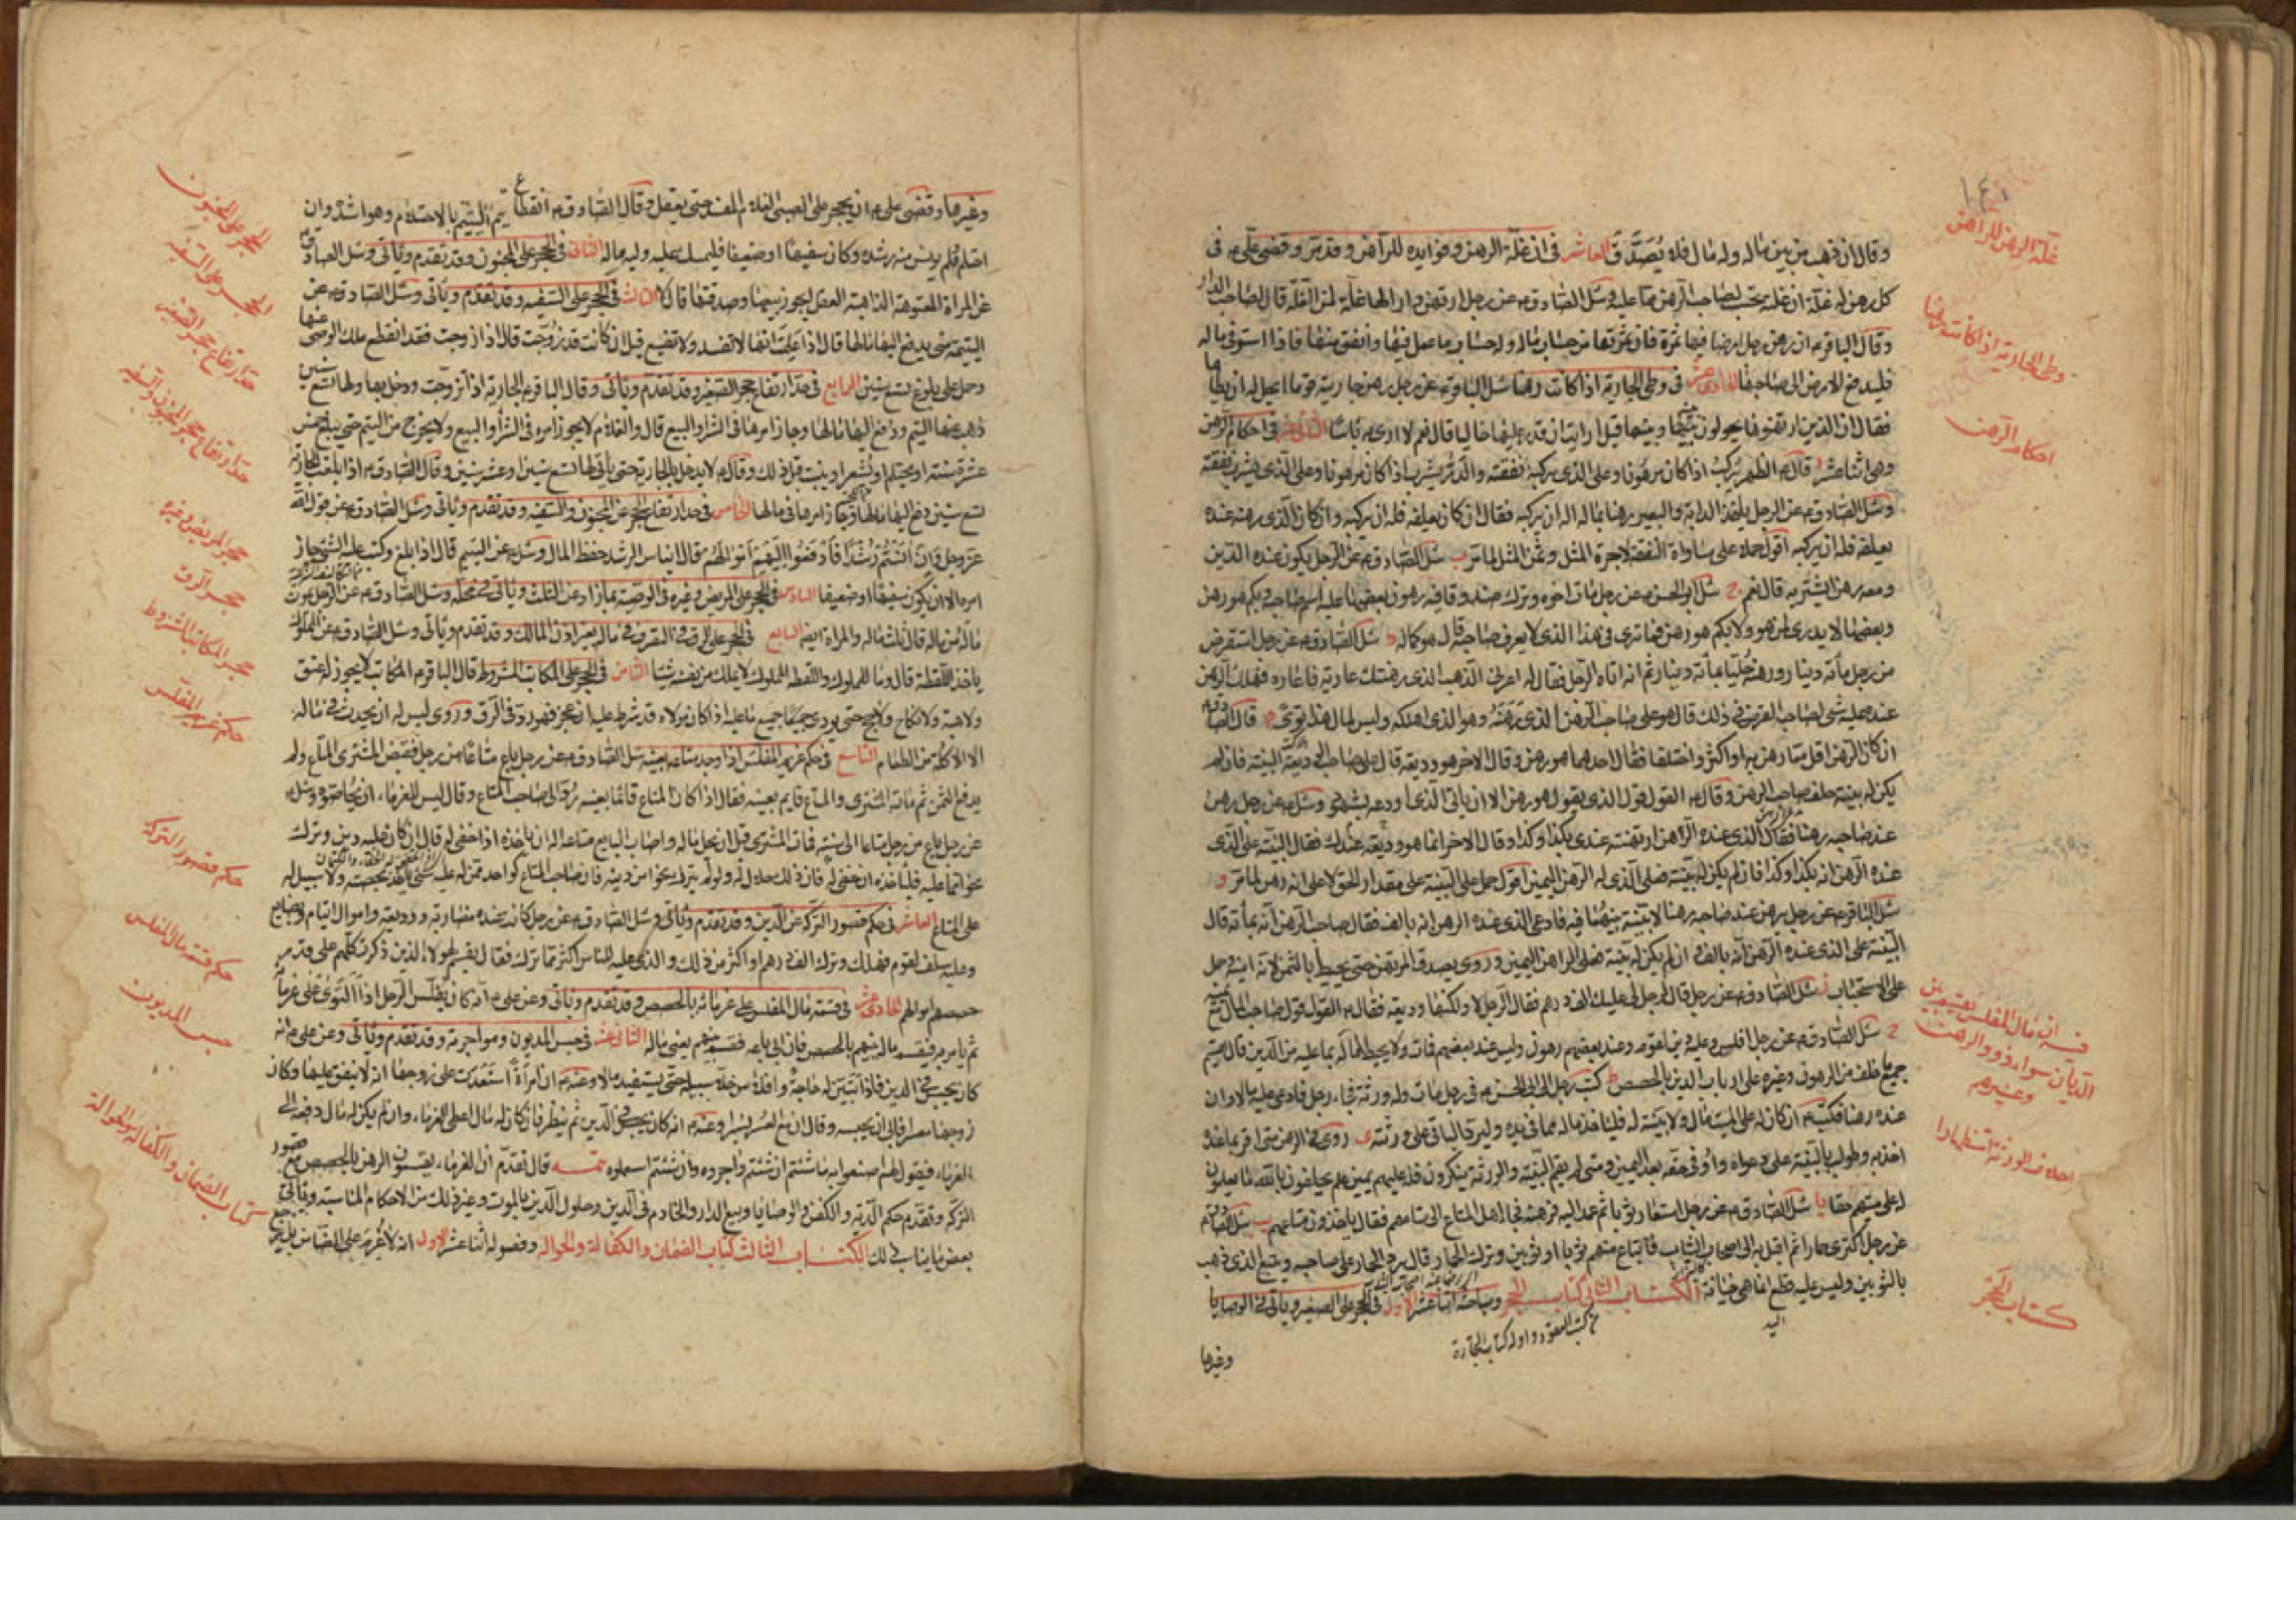 وقال ان ذهب من بين ماله وله مال فلا يُصَدَّق العاشر في ان غلة الرهن وفوايده للراهن وقد مر وقضى علي ع في
كل رهن له غلة ان غلته تحسب لصاحب الرهن مما عليه وسئل الصادق ع عن رجل ارتهن دارا لها غلة لمن الغلة قال لصاحب الدار
وقال الباقر ع ان رهن رجل ارضا فيها ثمرة فان ثمرتها من حساب ماله وله حساب ما عمل فيها وانفق منها فاذا استوفى ماله
فليدفع الارض الى صاحبها الحادي عشر في وطى الجارية اذا كانت رهنا سئل الباقر ع عن رجل رهن جاريته قوما ايحل له ان يطأها
فقال ان الذين ارتهنوها يحولون بينه وبينها قيل ارايت ان قدر عليها خاليا قال نعم لا ارى به باسا الثاني عشر في احكام الرهن
وهي اثنا عشر ا قال ع الظهر يركب اذا كان مرهونا وعلى الذي يركبه نفقته والدر يشرب اذا كان مرهونا وعلى الذي يشرب نفقته
وسئل الصادق ع عن الرجل ياخذ الدابة والبعير رهنا بماله اله ان يركبه فقال ان كان يعلفه فله ان يركبه وان كان الذي رهنه عنده
يعلفه فله ان يركبه اقول حمله على مساواة النفقة لاجرة المثل وثمن المثل لما مر ب سئل الصادق ع عن الرجل يكون عنده الدين
ومعه رهن ايشتريه قال نعم ج سئل ابو الحسن ع عن رجل مات اخوه وترك صندوقا فيه رهون بعضها عليه اسم صاحبه وبكم هو رهن
وبعضها لا يدرى لمن هو ولا بكم هو رهن فما ترى في هذا الذي لا يعرف صاحبه قال هو كماله د سئل الصادق ع عن رجل استقرض
من رجل مائة دينار ورهنه حليا بمائة دينار ثم انه اتاه الرجل فقال له اعرني الذهب الذي رهنتك عارية فاعاره فهلك الرهن
عنده عليه شئ لصاحب القرض في ذلك قال هو على صاحب الرهن الذي رهنه وهو الذي اهلكه وليس لمال هذا توى ه قال الصادق ع
ان كان الرهن اقل مما رهن به او اكثر واختلفا فقال احدهما هو رهن وقال الاخر هو وديعة قال على صاحب الوديعة البينة فان لم
يكن له بينة حلف صاحب الرهن وقال ع القول قول الذي يقول هو رهن الا ان ياتي الذي ادعى انه اودعه بشهود وسئل ع عن رجل رهن
عند صاحبه رهنا فقال الذي عنده الرهن ارتهنته عندي بكذا وكذا وقال الاخر انما هو وديعة عندك فقال البينة على الذي
عنده الرهن انه بكذا وكذا فان لم يكن له بينة فعلى الذي له الرهن اليمين اقول حمل على البينة على مقدار الحق لا على انه رهن لما مر و
سئل الباقر ع عن رجل يرهن عند صاحبه رهنا لا بينة بينهما فيه فادعى الذي عنده الرهن انه بالف فقال صاحب الرهن انه بمائة قال
البينة على الذي عنده الرهن انه بالف وان لم يكن له بينة فعلى الراهن اليمين وروي يصدق المرتهن حتى يحيط بالثمن لانه امينه وحمل
على الاستحباب ز سئل الصادق ع عن رجل قال لرجل لي عليك الف درهم فقال الرجل لا ولكنها وديعة فقال ع القول قول صاحب المال مع يمينه
ح سئل الصادق ع عن رجل افلس وعليه دين لقوم وعند بعضهم رهون وليس عند بعضهم فمات ولا يحيط ماله بما عليه من الدين قال يقسم
جميع ما خلف من الرهون وغيره على ارباب الدين بالحصص ط كتب رجل الى ابي الحسن ع في رجل مات وله ورثة فجاء رجل فادعى عليه مالا وان
عنده رهنا فكتب ع ان كان له على الميت مال ولا بينة له فلياخذ ماله مما في يده وليرد الباقي على ورثته ى روي في الرهن متى اقر بما عنده
اخذ به وطولب بالبينة على دعواه واوفى حقه بعد اليمين ومتى لم يقم البينة والورثة ينكرون فله عليهم يمين علم يحلفون بالله ما يعلمون
له على ميتهم حقا يا سئل الصادق ع عن رجل استعار ثوبا ثم عمد اليه فرهنه فجاء اهل المتاع الى متاعهم فقال ياخذون متاعهم يب سئل الصادق ع
عن رجل اكترى حمارا ثم اقبل به الى اصحاب الثياب فابتاع منهم ثوبا او ثوبين وترك الحمار قال يرد الحمار على صاحبه ويتبع الذي ذهب
بالثوبين وليس عليه قطع انما هي خيانة الكتاب الثاني كتاب الحجر ومباحثه اثنا عشر الاول في الحجر على الصغير وياتي في الوصايا
وغيرها
غلة الرهن للراهن
وطى الجارية اذا كانت رهنا
احكام الرهن
كتاب الحجر
وغيرها وقضى علي ع ان يحجر على الصبي الغلام المفسد حتى يعقل وقال الصادق ع انقطاع يتم اليتيم بالاحتلام وهو اشده وان
احتلم ولم يونس منه رشده وكان سفيها او ضعيفا فليمسك عليه وليه ماله الثاني في الحجر على المجنون وقد تقدم وياتي وسئل الصادق ع
عن المراة المعتوهة الذاهبة العقل يجوز بيعها وصدقتها قال لا الثالث في الحجر على السفيه وقد تقدم وياتي وسئل الصادق ع عن
اليتيمة متى يدفع اليها مالها قال اذا علمت انها لا تفسد ولا تضيع قيل ان كانت قد زوجت قال اذا زوجت فقد انقطع ملك الوصي عنها
وحمل على بلوغ تسع سنين الرابع في حد ارتفاع حجر الصغير وقد تقدم وياتي وقال الباقر ع الجارية اذا تزوجت ودخل بها ولها تسع سنين
ذهب عنها اليتم ودفع اليها مالها وجاز امرها في الشرا والبيع قال والغلام لا يجوز امره في الشرا والبيع ولا يخرج من اليتم حتى يبلغ خمس
عشرة سنة او يحتلم او يشعر او ينبت قبل ذلك وقال ع لا يدخل بالجارية حتى ياتي لها تسع سنين او عشر سنين وقال الصادق ع اذا بلغت الجارية
تسع سنين دفع اليها مالها وجاز امرها في مالها الخامس في حد ارتفاع الحجر عن المجنون والسفيه وقد تقدم وياتي وسئل الصادق ع عن قول الله
عز وجل فان آنستم منهم رشدا فادفعوا اليهم اموالهم قال ايناس الرشد حفظ المال وسئل ع عن اليتيم قال اذا بلغ وكتب عليه الشئ جاز
امره الا ان يكون سفيها او ضعيفا السادس في الحجر على المريض وغيره في الوصية بما زاد عن الثلث وياتي في محله وسئل الصادق ع عن الرجل يموت
ماله من ماله قال ثلث ماله والمراة ايضا السابع في الحجر على الرق في التصرف في ماله بغير اذن المالك وقد تقدم وياتي وسئل الصادق ع عن المملوك
ياخذ اللقطة قال وما للمملوك واللقطة المملوك لا يملك من نفسه شيئا الثامن في الحجر على المكاتب المشروط قال الباقر ع المكاتب لا يجوز له عتق
ولا هبة ولا نكاح ولا حج حتى يودي جميع ما عليه اذا كان مولاه قد شرط عليه ان عجز فهو رد في الرق وروي ليس له ان يحدث في ماله
الا الاكلة من الطعام التاسع في حكم غريم المفلس اذا وجد متاعه بعينه سئل الصادق ع عن رجل باع متاعا من رجل فقبض المشتري المتاع ولم
يدفع الثمن ثم مات المشتري والمتاع قايم بعينه فقال اذا كان المتاع قائما بعينه رد الى صاحب المتاع وقال ليس للغرماء ان يحاصوه وسئل ع
عن رجل باع من رجل متاعا الى سنة فمات المشتري قبل ان يحل ماله واصاب البايع متاعه اله ان ياخذه اذا خفي له قال ان كان عليه دين وترك
نحوا مما عليه فلياخذه ان خفي له فان ذلك حلال له ولو لم يترك نحوا من دينه فان صاحب المتاع كواحد ممن له عليه شئ ياخذ بحصته ولا سبيل له
على المتاع العاشر في حكم قصور التركة عن الدين وقد تقدم وياتي وسئل الصادق ع عن رجل كانت عنده مضاربة ووديعة واموال ايتام وبضايع
وعليه سلف لقوم فهلك وترك الف درهم او اكثر من ذلك والذي عليه للناس اكثر مما ترك فقال يقسم لهولاء الذين ذكرت كلهم على قدر
حصصهم اموالهم الحادي عشر في قسمة مال المفلس على غرمائه بالحصص وقد تقدم وياتي وعن علي ع انه كان يفلس الرجل اذا التوى على غرمائه
ثم يامر به فيقسم ماله بينهم بالحصص فان ابى باعه فقسمه بينهم يعني ماله الثاني عشر في حبس المديون ومواجرته وقد تقدم وياتي وعن علي ع انه
كان يحبس في الدين فاذا تبين له حاجة وافلاس خلى سبيله حتى يستفيد مالا وعنه ع ان امراة استعدت على زوجها انه لا ينفق عليها وكان
زوجها معسرا فابى ان يحبسه وقال ان مع العسر يسرا وعنه ع انه كان يحبس في الدين ثم ينظر فان كان له مال اعطى الغرماء وان لم يكن له مال دفعه الى
الغرماء فيقول لهم اصنعوا به ما شئتم ان شئتم واجروه وان شئتم استعملوه تتمه قال تقدم ان الغرماء يقتسمون الرهن بالحصص مع قصور
التركة وتقدم حكم الدية والكفن والوصايا وبيع الدار والخادم في الدين وحلول الدين بالموت وغير ذلك من الاحكام المناسبة وياتي
بعض ما يناسب ذلك الكتاب الثالث كتاب الضمان والكفالة والحواله وفصوله اثنا عشر الاول انه لا غرم على الضامن بل يرجع
الحجر على المجنون
الحجر على السفيه
حد ارتفاع حجر الصغير
حد ارتفاع حجر المجنون والسفيه
حجر المريض وغيره
حجر الرق
حجر المكاتب المشروط
حكم غريم المفلس
حكم قصور التركة
حكم قسمة مال المفلس
حبس المديون
كتاب الضمان والكفالة والحوالة